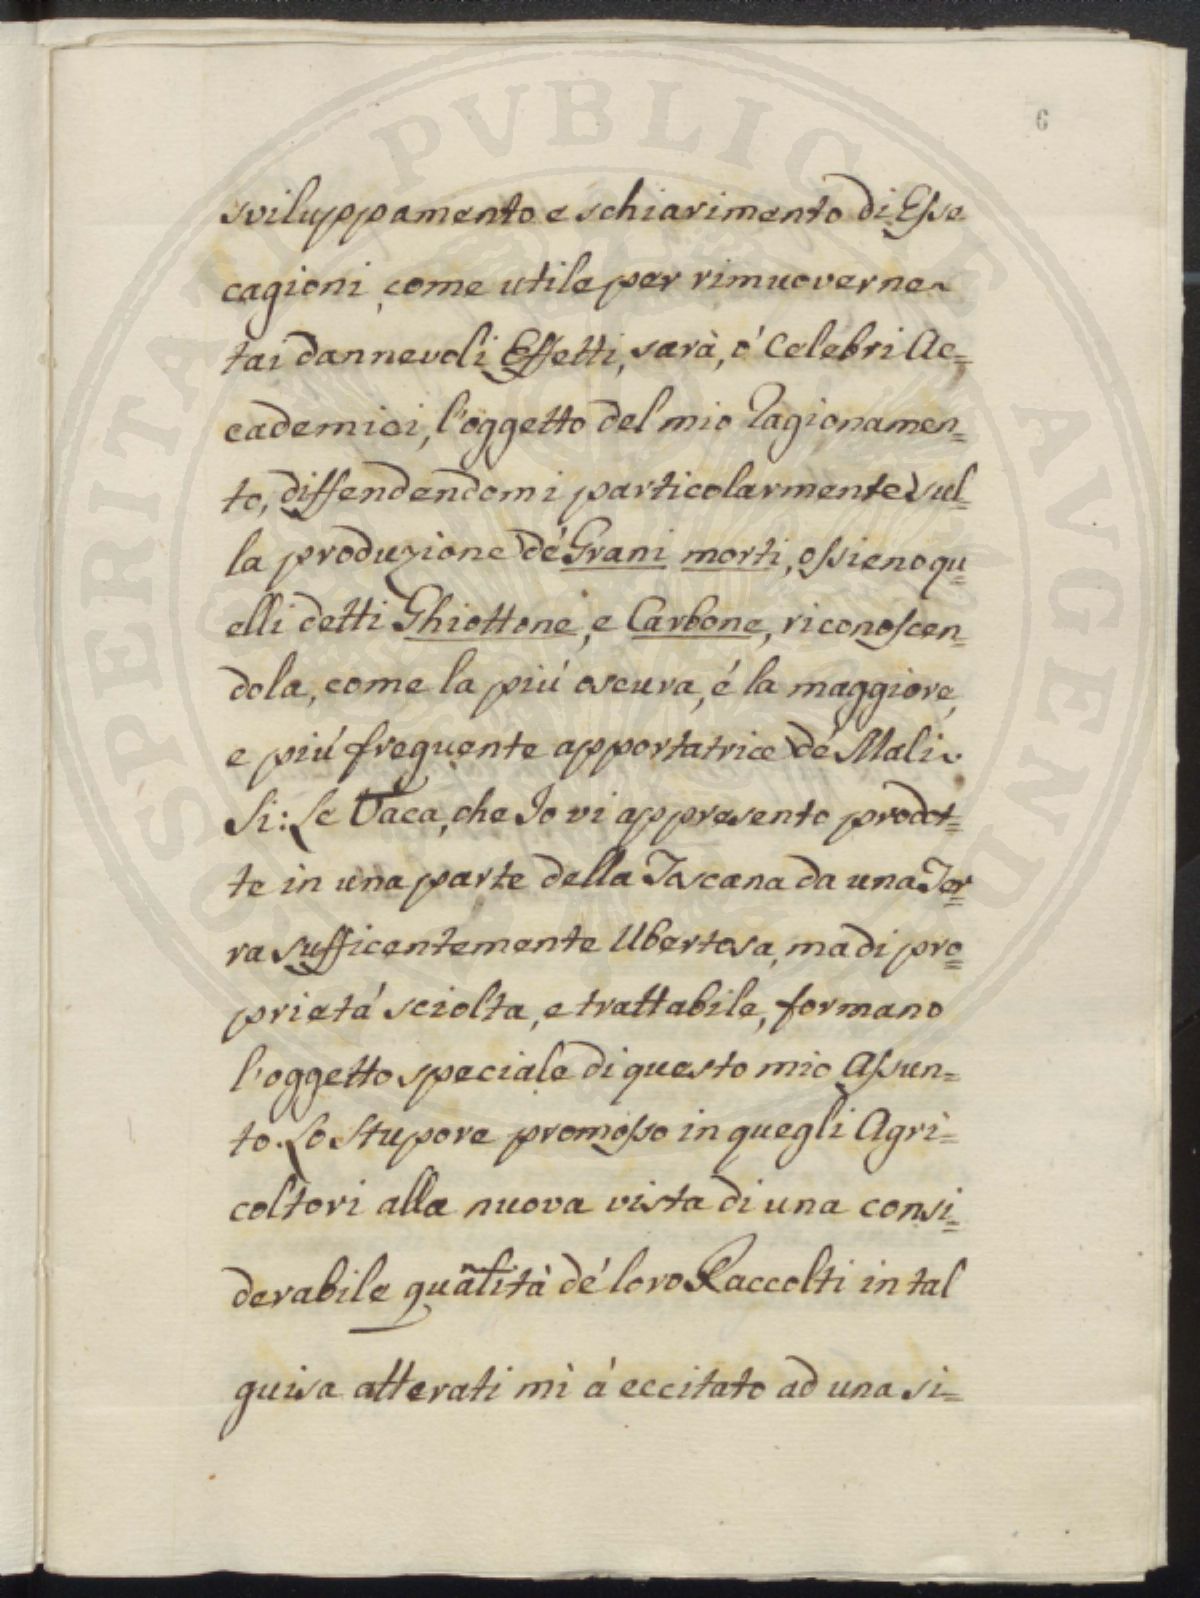 6
sviluppamento e schiarimento di Esse
cagioni, come utile per rimuoverne
tai dannevoli Effetti, sarà, ó Celebri Ac=
cademici, l'oggetto del mio Ragionamen=
to, diffendendomi particolarmente sul=
la produzione dé Grani morti, ossieno qu=
elli detti Ghiottone, e Carbone, riconoscen=
dola, come la piú oscura, é la maggiore,
e piú frequente apportatrice dé Mali.
Si: Le Vaca, che Io vi appresento prodot=
te in una parte della Toscana da una Ter=
ra sufficentemente Ubertosa, ma di pro=
prietá sciolta, e trattabile, formano
l'oggetto speciale di questo mio Assun=
to. Lo Stupore promosso in quegli Agri=
coltori alla nuova vista di una consi=
derabile quãtità dé loro Raccolti in tal
guisa atterati mi á eccitato ad una si=
PROSPERITATI PVBLICAE AVGENDAE